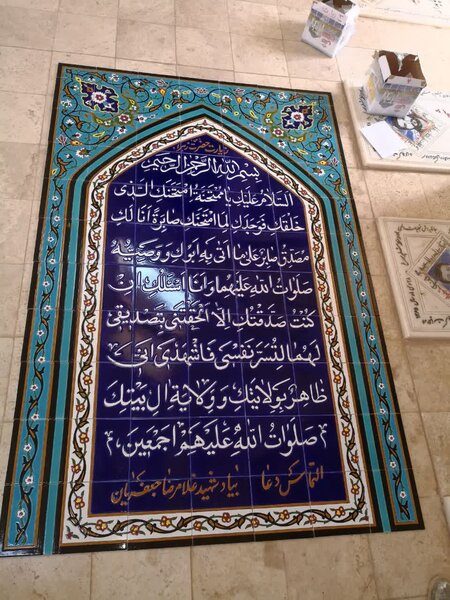 زیارت حضرت زهرا
بسم الله الرحمن الرحیم
السلام علیک یا ممتحنة امتحنک الذی
خلقک فوجدک لما امتحنک صابرة انا لک
مصدق صابر علی ما اتی به ابوک و وصیه
صلوات الله علیهما و انا اسئلک ان
کنت صدقتک الا الحقتنی بتصدیقی
لهما لتسر نفسی فاشهدی انی
ظاهر بولایتک و ولایة ال بیتک
صلوات الله علیهم اجمعین
التماس دعا بیاد شهید غلامرضا جعفریان